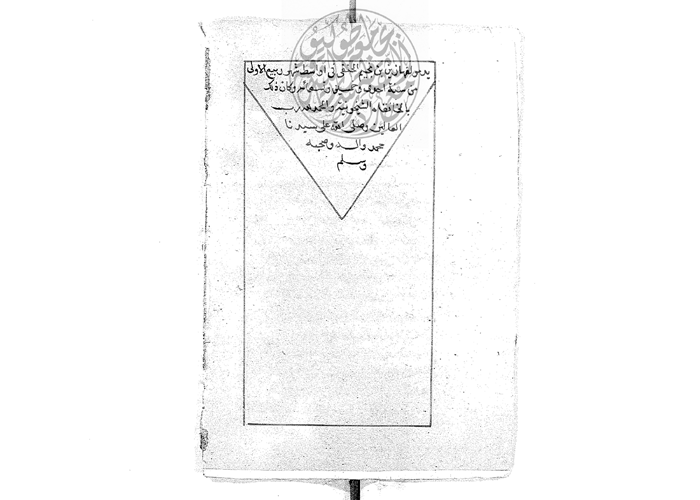 يد مولفها زين بن نجيم الحنفي في اواسط شهر ربيع الاولى
من سنة احدى وستين وتسعمائة وكان ذلك
بالخانقاه الشيخونية والحمد لله رب
العالمين وصلى الله على سيدنا
محمد واله وصحبه
وسلم